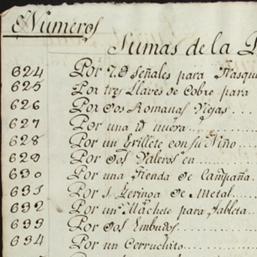 Numeros
Sumas de la P
624 Por 70 Señales para Frasque
625 Por tres Llaves de Cobre para
626 Por dos Romanas Viejas...
627 Por una id nueva
628 Por un Grillete con su
629 Por dos en
630 Por una Tienda de Campaña
631 Por 1. Geringa de Metal
632 Por un Machete para Tableta
633 Por dos Embudos
634 Por un Cerruchito